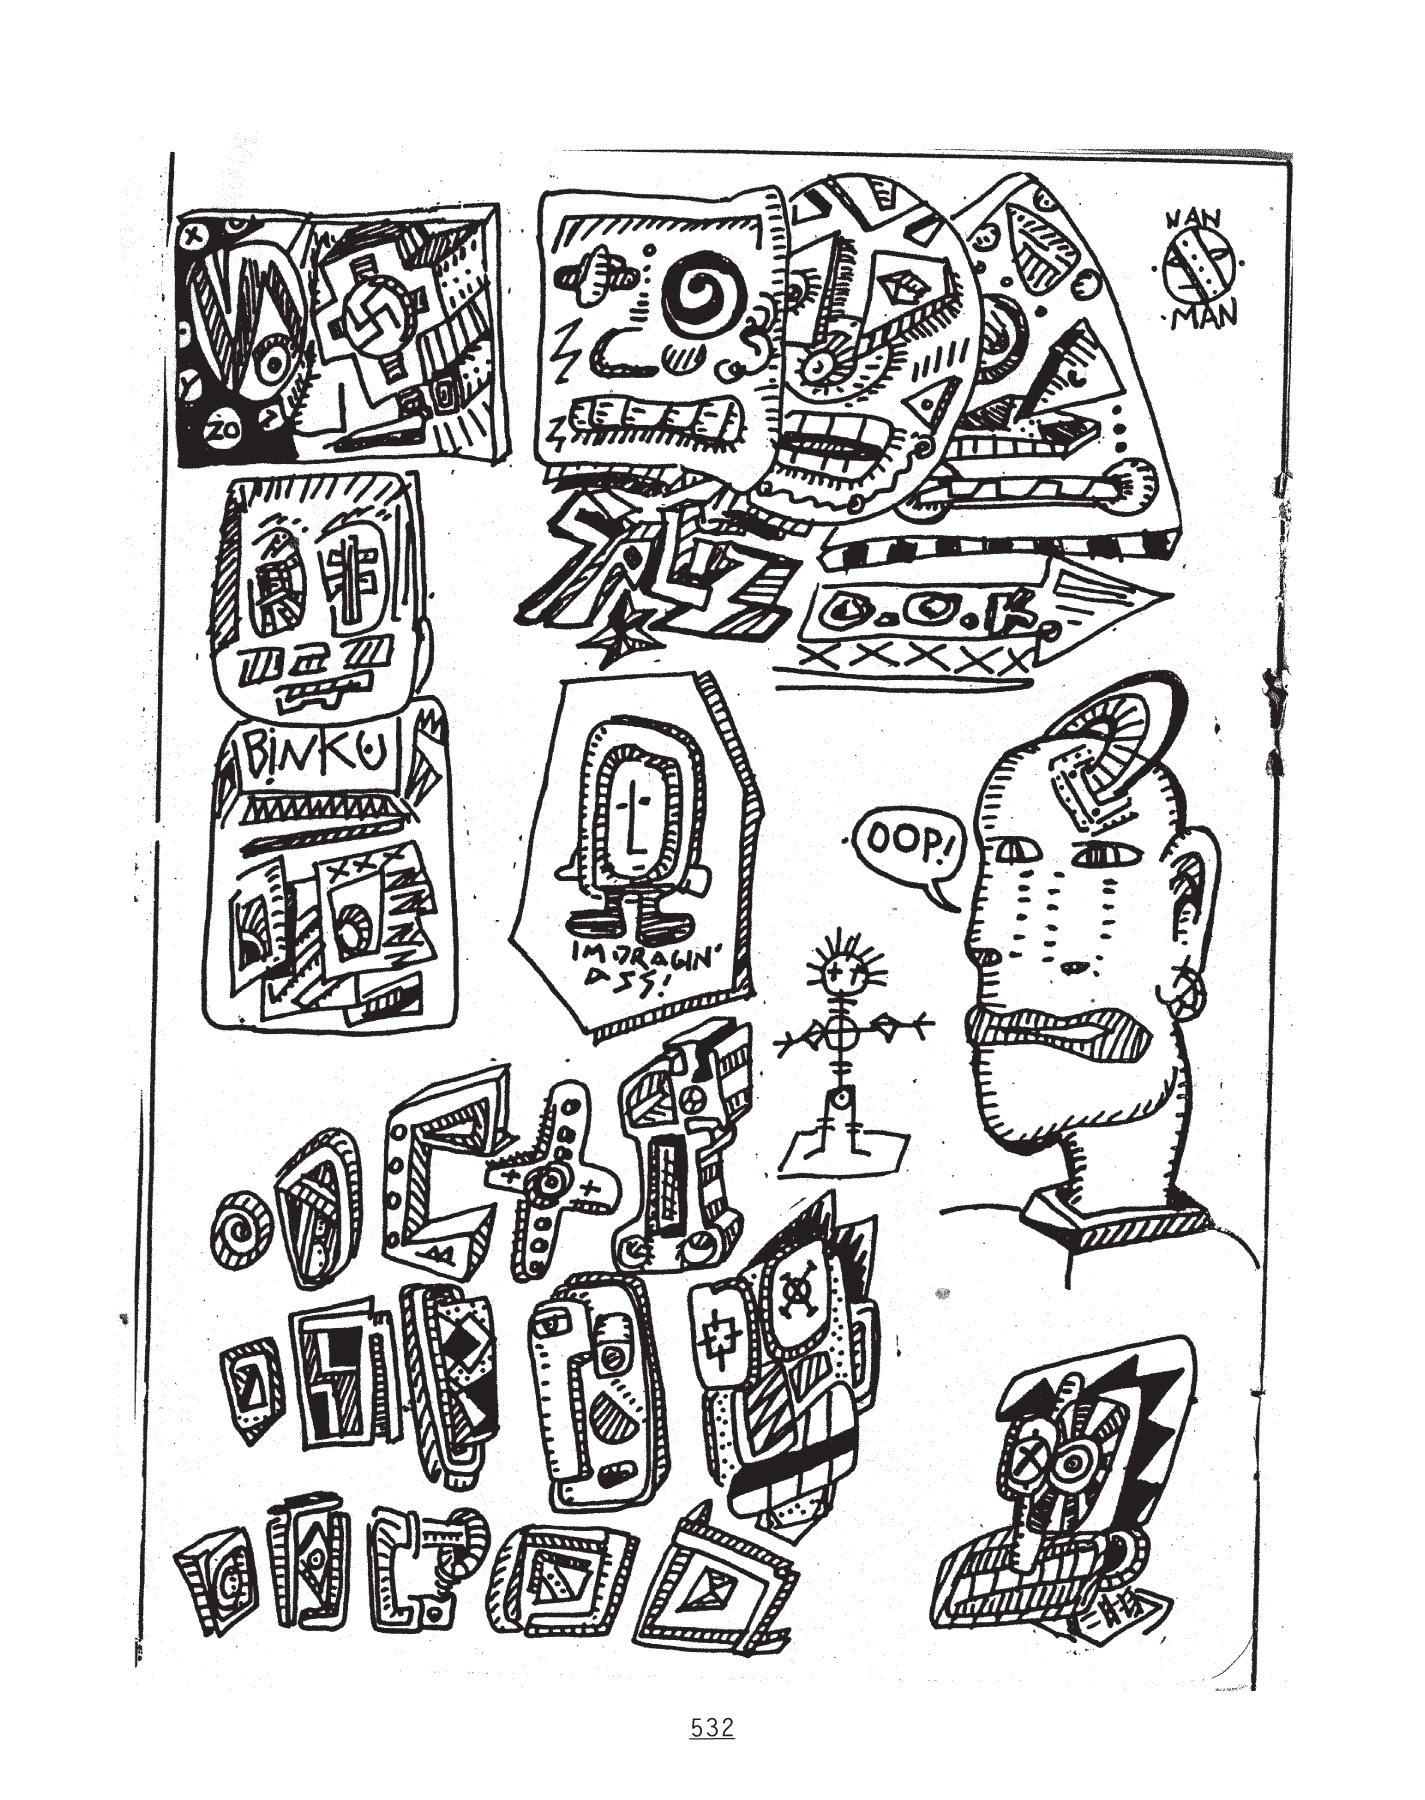 NAN
MAN
X
Y
ZO
O.O.K
BINKU
OOP!
IM DRAGIN'
ASS!
532